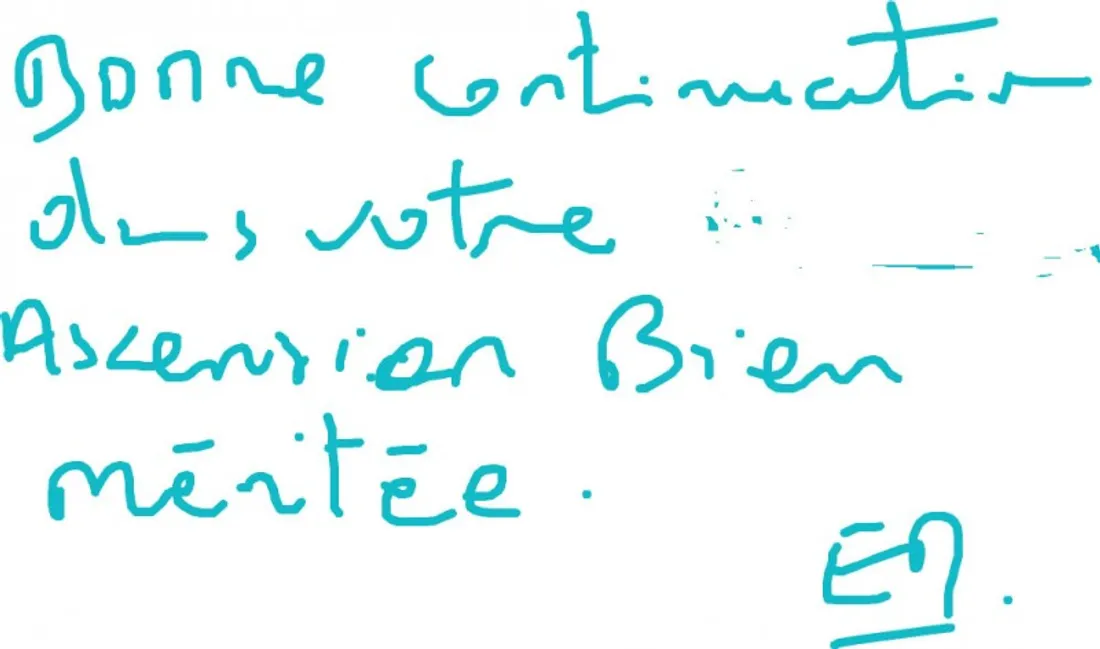 Bonne continuation
dans votre
Ascension Bien
méritée.